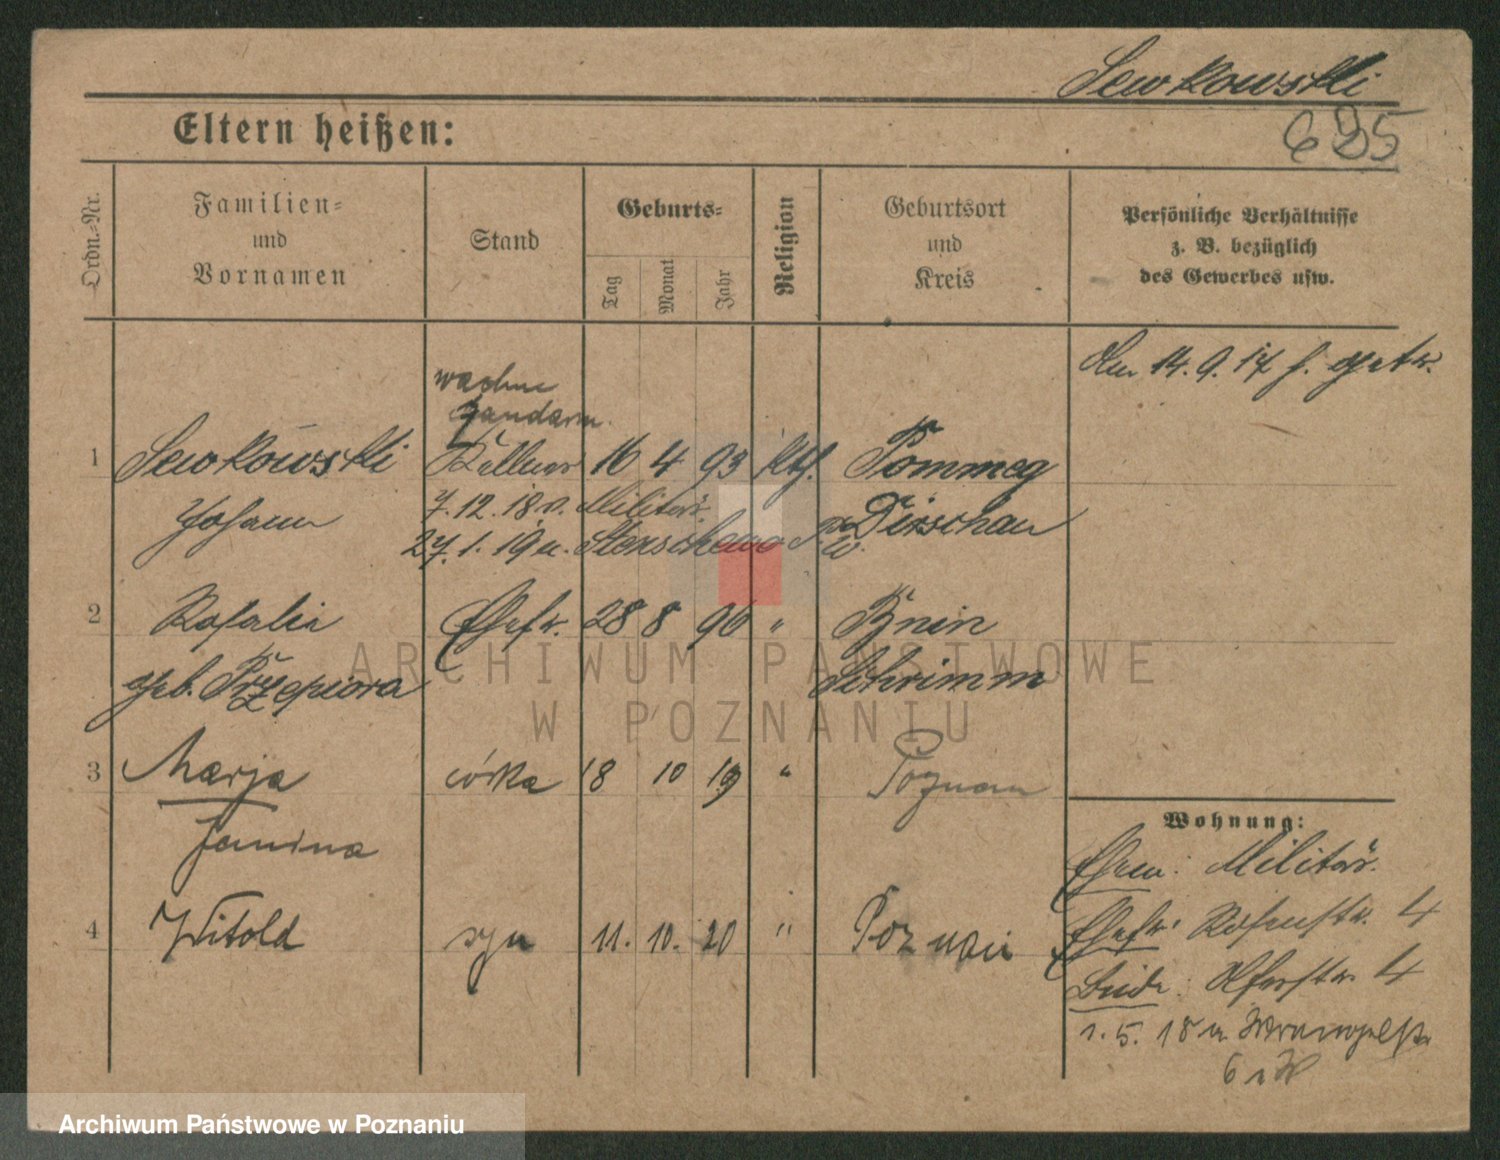 Sewkowski
695
Eltern heißen:
Ordn.-Nr.
Familien- und Vornamen
Stand
Geburts-
Tag
Monat
Jahr
Religion
Geburtsort und Kreis
Persönliche Verhältnisse
z. B. bezüglich
des Gewerbes usw.
den 14. 9. 17 h. getr.
żandarm.
1 Sewkowski Kellner 16 4 93 kth. Pommey
Johann 7. 12. 18 v. Militär.
27. 1. 19 n. Dirschau
2 Rosalie Ehefr. 28 8 96 " Bnin
geb. Przepiora Schrimm
ARCHIWUM PAŃSTWOWE
W POZNANIU
3 Marja córka 18 10 19 " Poznan
Janina
4 Witold syn 11. 10. 20 " Poznań
Wohnung:
Ehem: Militär.
Ehefr: Rosenstr. 4
Beide: 4
1. 5. 18 n. Wrangelstr
6
Archiwum Państwowe w Poznaniu